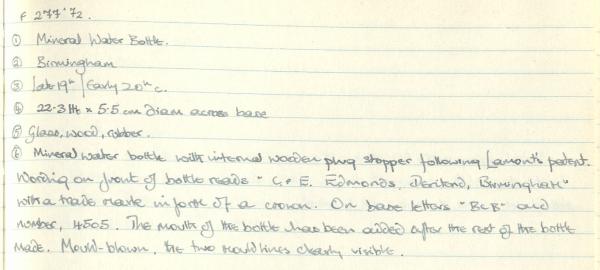 F 277'72.
① Mineral Water Bottle.
② Birmingham
③ Late 19th / Early 20th c.
④ 22.3 Ht x 5.5 cm diam across base
⑤ Glass, wood, rubber.
⑥ Mineral water bottle with internal wooden plug stopper following Lamont's patent.
Wording on front of bottle reads "C. & E. Edmonds, Deritend, Birmingham"
with a trade mark in form of a crown. On base letters "B&B" and
number, 4505. The mouth of the bottle has been added after the rest of the bottle
made. Mould-blown, the two mould lines clearly visible.